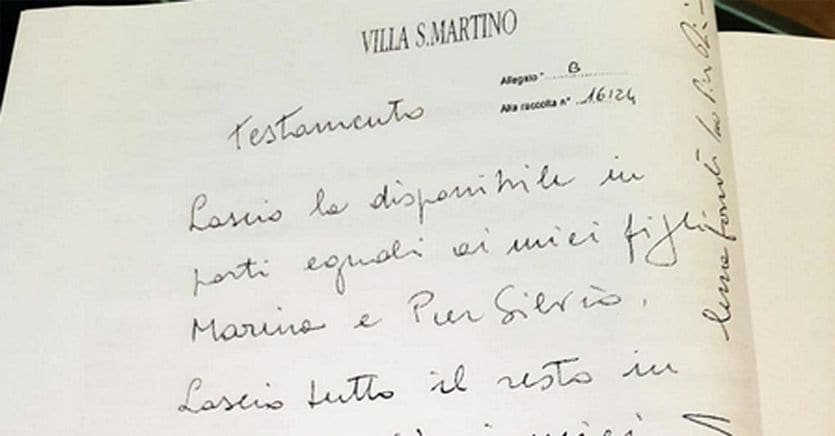 VILLA S.MARTINO
Allegato " B
Alla raccolta n° 16124
Testamento
Lascio la disponibile in
parti eguali ai miei figli
Marina e Pier Silvio.
Lascio tutto il resto in
miei